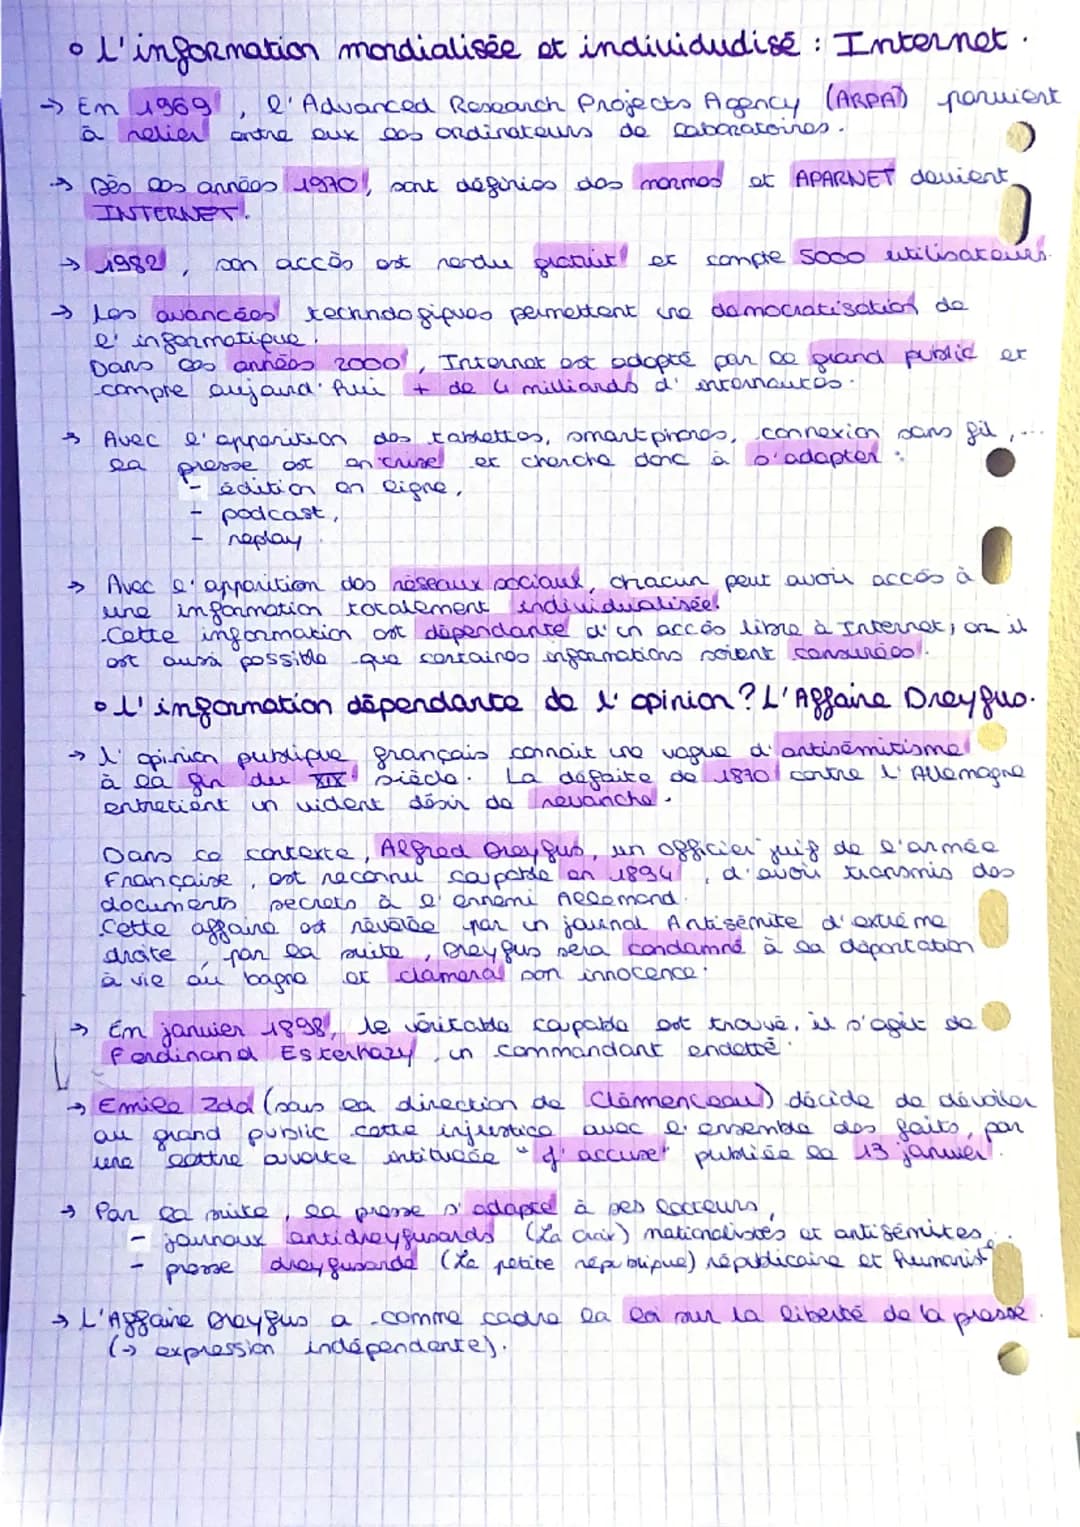 • L'information mondialisée et individudisé : Internet.
→ En 1969, l'Advanced Research Projects Agency (ARPA) parvient
à relier entre eux les ordinateurs de laboratoires.
→ Dès les années 1970, sont définies des normes et APARNET devient
INTERNET.
→ 1982, son accès est rendu gratuit et compte 5000 utilisateurs.
→ Les avancées technologiques permettent une démocratisation de
l'informatique.
Dans les années 2000, Internet est adopté par le grand public et
compte aujourd'hui + de 4 milliards d'internautes.
→ Avec l'apparition des tablettes, smartphones, connexion sans fil,...
la presse est en crise et cherche donc à s'adapter :
- édition en ligne,
- podcast,
- replay.
→ Avec l'apparition des réseaux sociaux, chacun peut avoir accès à
une information totalement individualisée.
Cette information est dépendante d'un accès libre à Internet, or il
est aussi possible que certaines informations soient censurées.
• L'information dépendante de l'opinion? L'Affaire Dreyfus.
→ L'opinion publique français connait une vague d'antisémitisme
à la fin du XIX siècle. La défaite de 1870 contre l'Allemagne
entretient un vident désir de revanche.
Dans ce contexte, Alfred Dreyfus, un officier juif de l'armée
Française, est reconnu coupable en 1894, d'avoir transmis des
documents secrets à l'ennemi Allemand.
Cette affaire est révélée par un journal Antisémite d'extrême
droite, par la suite, Dreyfus sera condamné à la déportation
à vie au bagne et clamera son innocence.
→ En janvier 1898, le véritable coupable est trouvé, il s'agit de
Ferdinand Esterhazy, un commandant endetté.
→ Emile Zola (sous la direction de Clémenceau) décide de dévoiler
au grand public cette injustice avec l'ensemble des faits, par
une lettre ouverte intitulée "J'accuse" publiée le 13 janvier.
→ Par la suite, la presse s'adapte à ses lecteurs,
- journaux antidreyfusards (La Croix) nationalistes et antisémites,
- presse dreyfusarde (La petite république) républicaine et humaniste
→ L'Affaire Dreyfus a comme cadre la loi sur la liberté de la presse.
(→ expression indépendante).